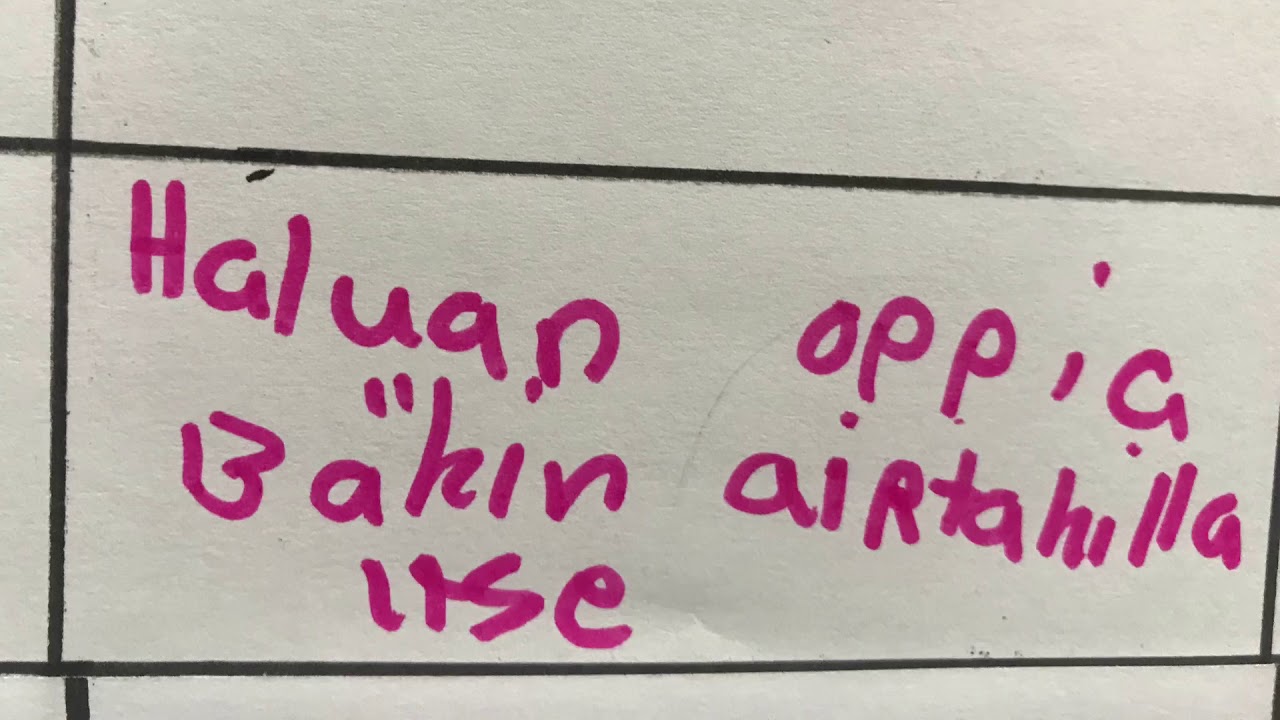 Haluan oppia
Bäkin aiRtahilla
itse